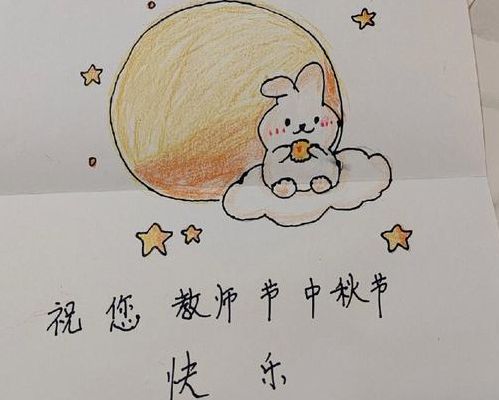 祝您教师节中秋节
快乐